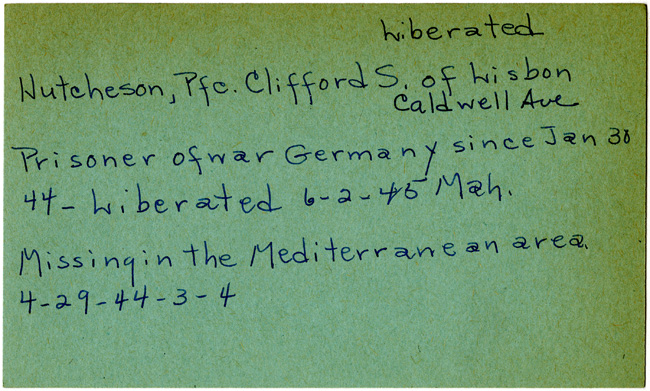 Liberated
Hutcheson, Pfc. Clifford S. of Lisbon
Caldwell Ave
Prisoner of war Germany since Jan 30
44 - Liberated 6-2-45 Mah.
Missing in the Mediterranean area.
4-29-44-3-4